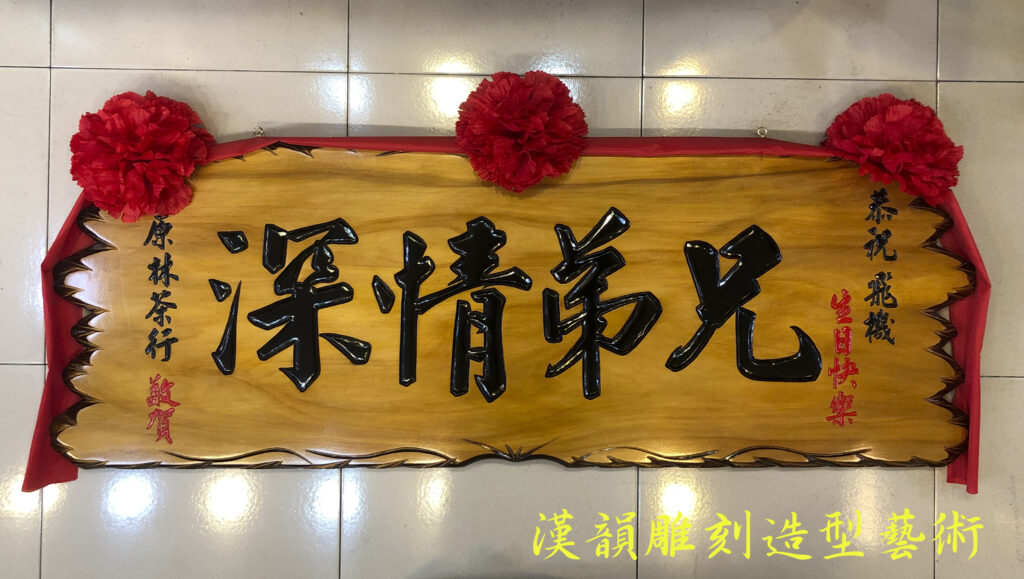 恭祝 飛機
生日快樂
兄弟情深
原林茶行 敬賀
漢韻雕刻造型藝術